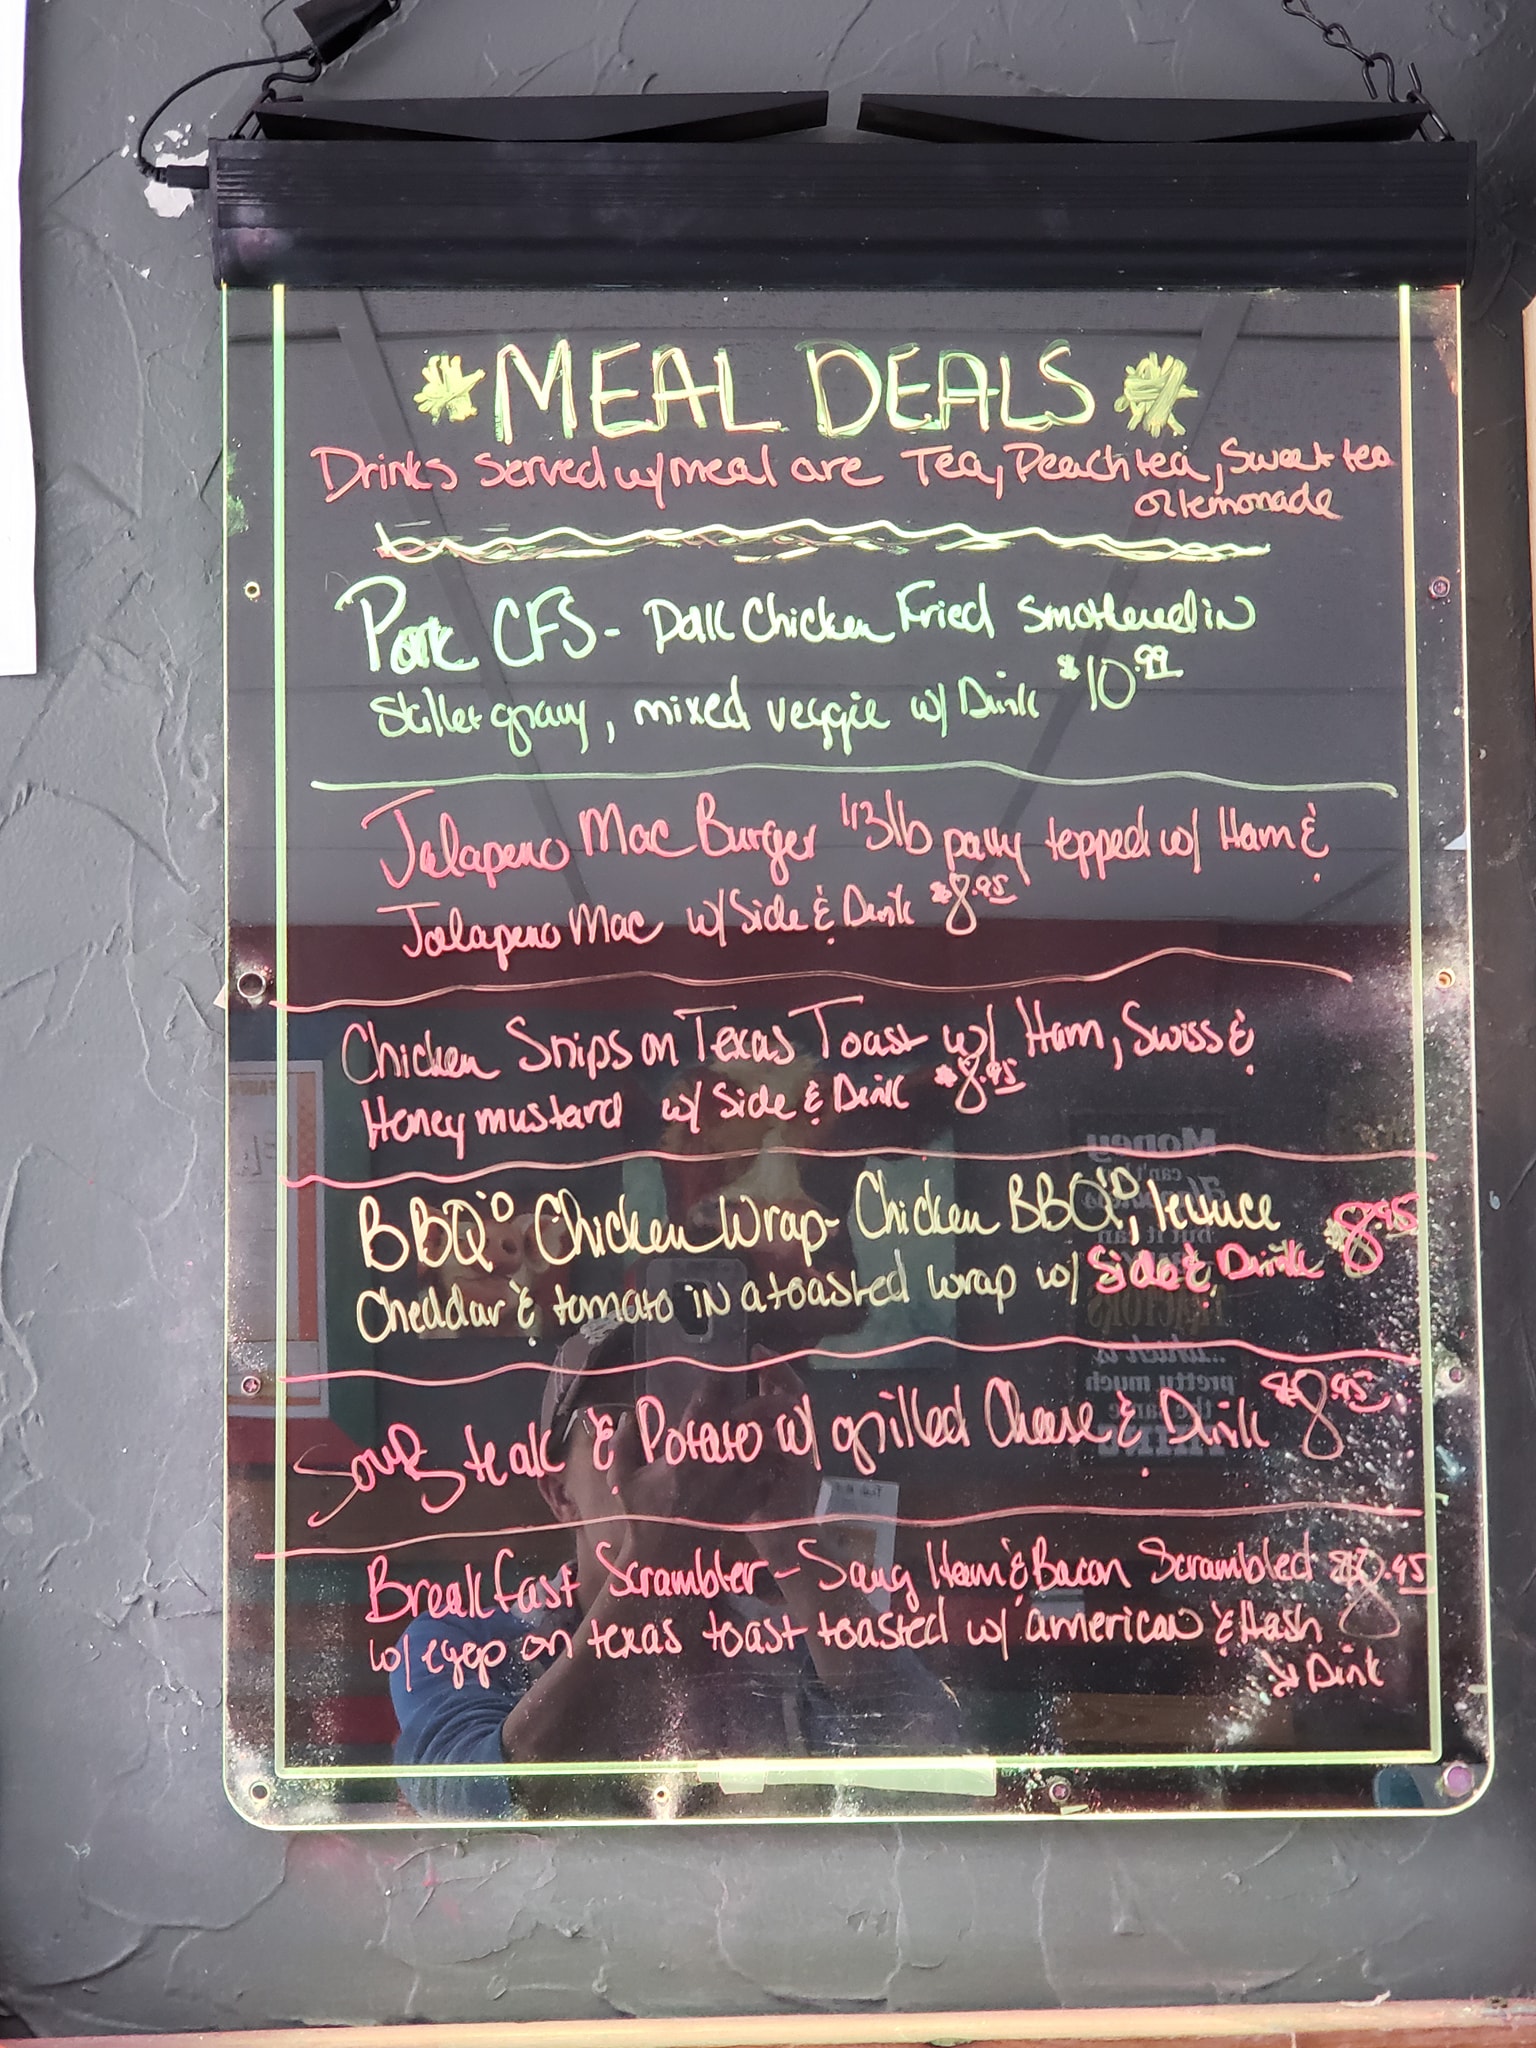 MEAL DEALS
Drinks served w/ meal are Tea, Peach tea, Sweet tea
or lemonade
Pork CFS - Chicken Fried Smothered in
Skillet gravy, mixed veggie w/ Drink $10.99
Jalapeno Mac Burger 1/3 lb patty topped w/ Ham &
Jalapeno Mac w/ Side & Drink $8.95
Chicken Snips on Texas Toast w/ Ham, Swiss &
Honey mustard w/ Side & Drink $8.95
BBQ'D Chicken Wrap - Chicken BBQ'D, lettuce
Cheddar & tomato in a toasted wrap w/ Side & Drink $8.95
Soup Steak & Potato w/ grilled Cheese & Drink $8.95
Breakfast Scrambler - Ham & Bacon Scrambled
w/ eggs on texas toast toasted w/ american & Hash
& Drink
Money
can't
but it can
...which is
pretty much
the same